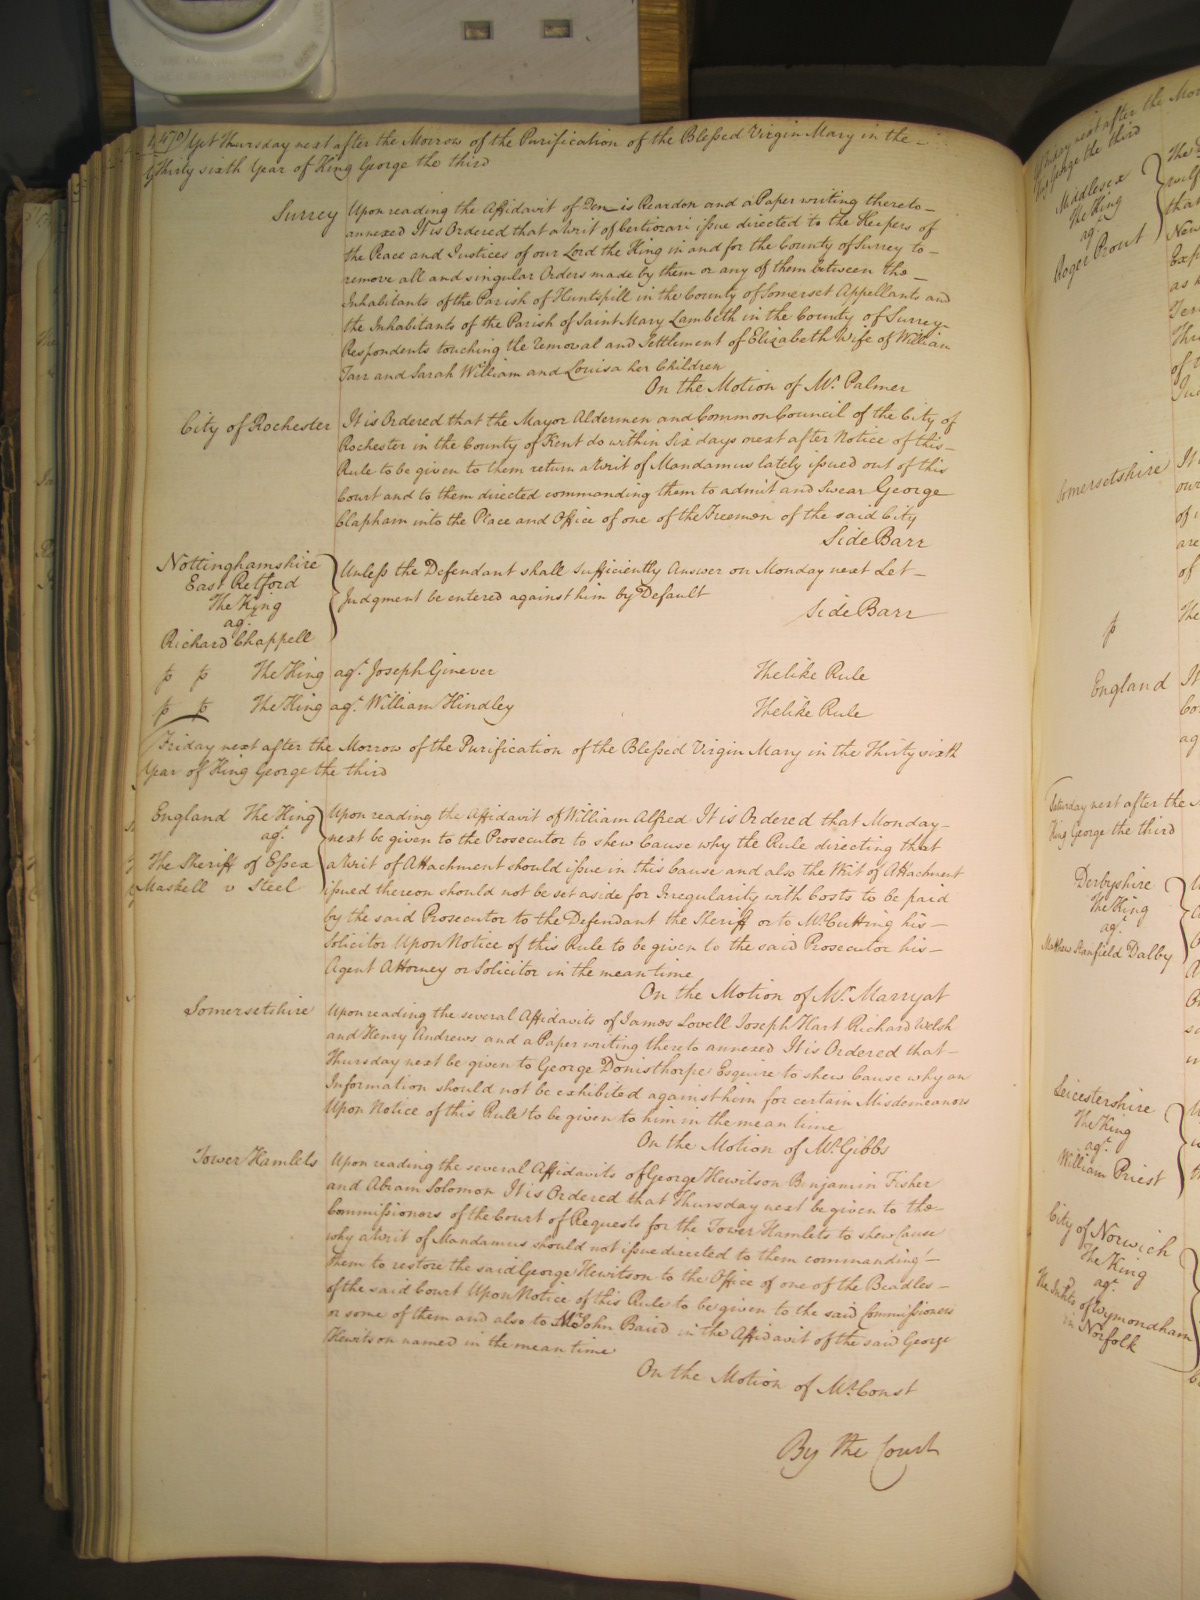 Yet Thursday next after the Morrow of the Purification of the Blessed Virgin Mary in the
Thirty sixth Year of King George the third
Surrey
Upon reading the Affidavit of Dennis Reardon and a Paper writing thereto
annexed It is Ordered that a Writ of Certiorari issue directed to the Keepers of
the Peace and Justices of our Lord the King in and for the County of Surrey to
remove all and singular Orders made by them or any of them between the
Inhabitants of the Parish of Huntspill in the County of Somerset Appellants and
the Inhabitants of the Parish of Saint Mary Lambeth in the County of Surrey
Respondents touching the removal and Settlement of Elizabeth Wife of William
Tarr and Sarah William and Louisa her Children
On the Motion of Mr. Palmer
City of Rochester
It is Ordered that the Mayor Aldermen and Common Council of the City of
Rochester in the County of Kent do within Six days next after Notice of this
Rule to be given to them return a Writ of Mandamus lately issued out of this
Court and to them directed commanding them to admit and Swear George
Clapham into the Place and Office of one of the Freemen of the said City
Side Barr
Nottinghamshire
East Retford
The King
agt.
Richard Chappell
Unless the Defendant shall sufficiently Answer on Monday next Let
Judgment be entered against him by Default
Side Barr
p p The King agt. Joseph Ginever The like Rule
p p The King agt. William Hindley The like Rule
Friday next after the Morrow of the Purification of the Blessed Virgin Mary in the Thirty sixth
Year of King George the third
England The King
agt.
The Sheriff of Essex
Maskell v Steel
Upon reading the Affidavit of William Alfred It is Ordered that Monday
next be given to the Prosecutor to shew Cause why the Rule directing that
a Writ of Attachment should issue in this Cause and also the Writ of Attachment
issued thereon should not be set aside for Irregularity with Costs to be paid
by the said Prosecutor to the Defendant the Sheriff or to Mr. Cutting his
Solicitor Upon Notice of this Rule to be given to the said Prosecutor his
Agent Attorney or Solicitor in the mean time
On the Motion of Mr. Marryat
Somersetshire
Upon reading the several Affidavits of James Lovell Joseph Hart Richard Welsh
and Henry Andrews and a Paper writing thereto annexed It is Ordered that
Thursday next be given to George Donisthorpe Esquire to shew Cause why an
Information should not be exhibited against him for certain Misdemeanors
Upon Notice of this Rule to be given to him in the mean time
On the Motion of Mr. Gibbs
Tower Hamlets
Upon reading the several Affidavits of George Hewitson Benjamin Fisher
and Abram Solomon It is Ordered that Thursday next be given to the
Commissioners of the Court of Requests for the Tower Hamlets to shew Cause
why a Writ of Mandamus should not issue directed to them commanding
them to restore the said George Hewitson to the Office of one of the Beadles
of the said Court Upon Notice of this Rule to be given to the said Commissioners
or some of them and also to Mr. John Baird in the Affidavit of the said George
Hewitson named in the mean time
On the Motion of Mr. Const
By the Court
next after the
George the third
Middlesex
The King
agt.
Roger Prout
Somersetshire
p
England
Saturday next after the
King George the third
Derbyshire
The King
agt.
Mathew Stanfield Dalby
Leicestershire
The King
agt.
William Priest
City of Norwich
The King
agt.
of Wymondham
in Norfolk